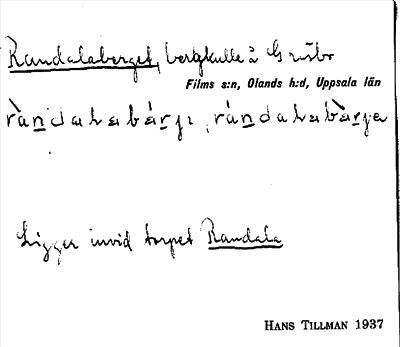 Randalaberget, bergkulle å Gruvbo
Films s:n, Olands h:d, Uppsala län
Ligger invid torpet Randala
HANS TILLMAN 1937